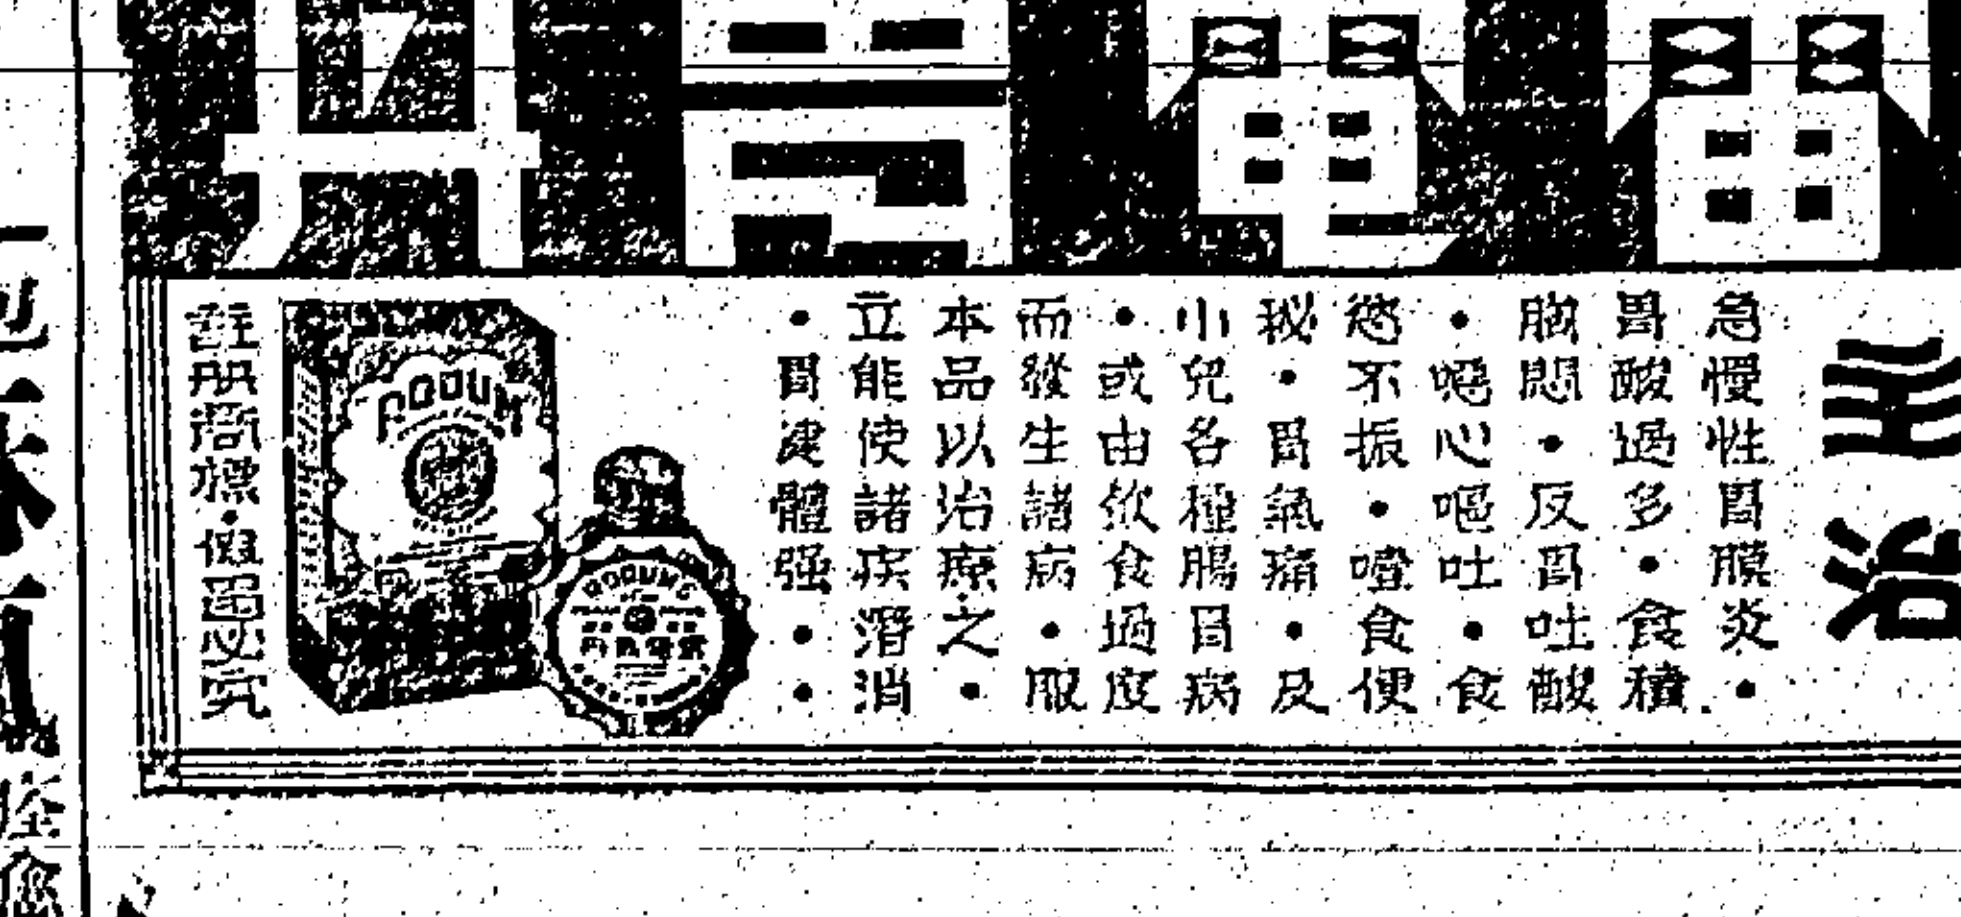 主治
急慢性胃膜炎•
胃酸過多•食積
胸悶•反胃吐酸
•噁心嘔吐•食
慾不振•噎食便
秘•胃氣痛•及
小兒各種腸胃病
•或由飲食過度
而發生諸病•服
本品以治療之•
立能使諸疾潛消
•胃健體强••
註册商標•假冒必究